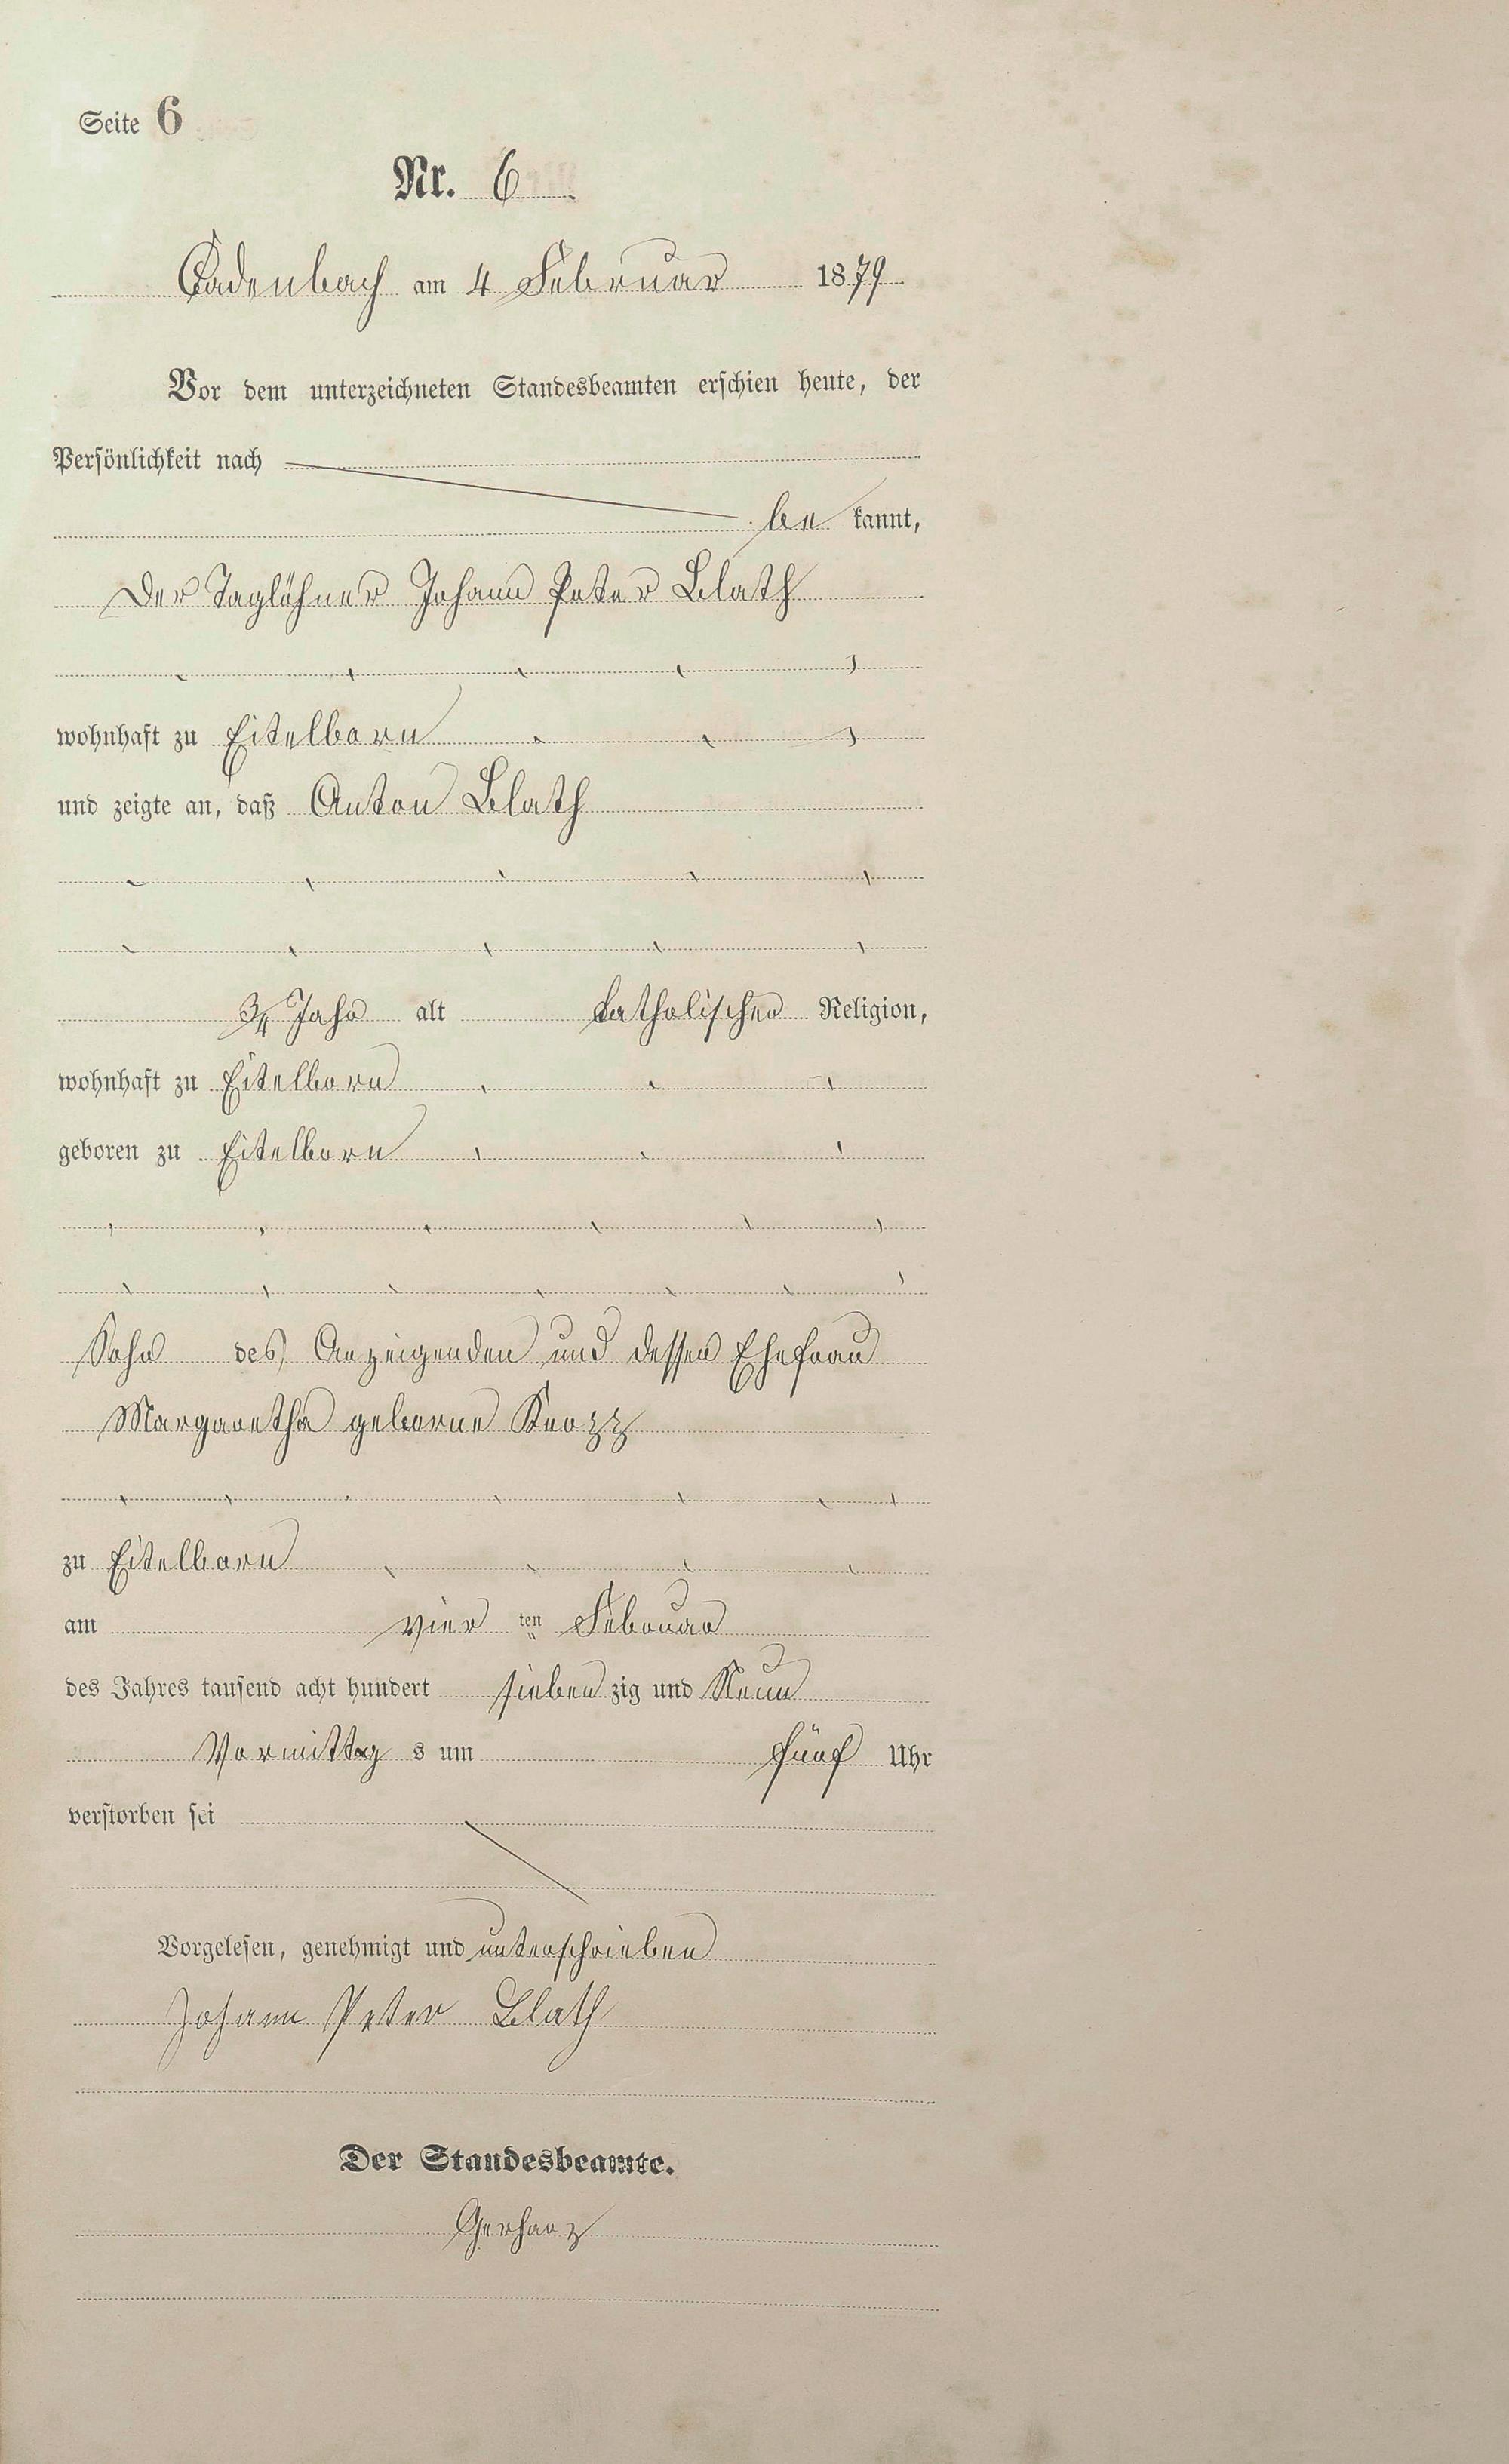 Seite 6
Nr. 6
Cadenbach am 4 Februar 1879
Vor dem unterzeichneten Standesbeamten erschien heute, der
Persönlichkeit nach
be kannt,
Der Taglöhner Johann Peter Blath
wohnhaft zu Eitelborn
und zeigte an, daß Anton Blath
3/4 Jahr alt katholischer Religion,
wohnhaft zu Eitelborn
geboren zu Eitelborn
Sohn des Anzeigenden und dessen Ehefrau
Margaretha geborne
zu Eitelborn
am vier ten Februar
des Jahres tausend acht hundert sieben zig und Neun
Vormittag s um fünf Uhr
verstorben sei
Vorgelesen, genehmigt und unterschrieben
Johann Peter Blath
Der Standesbeamte.
Gerharz